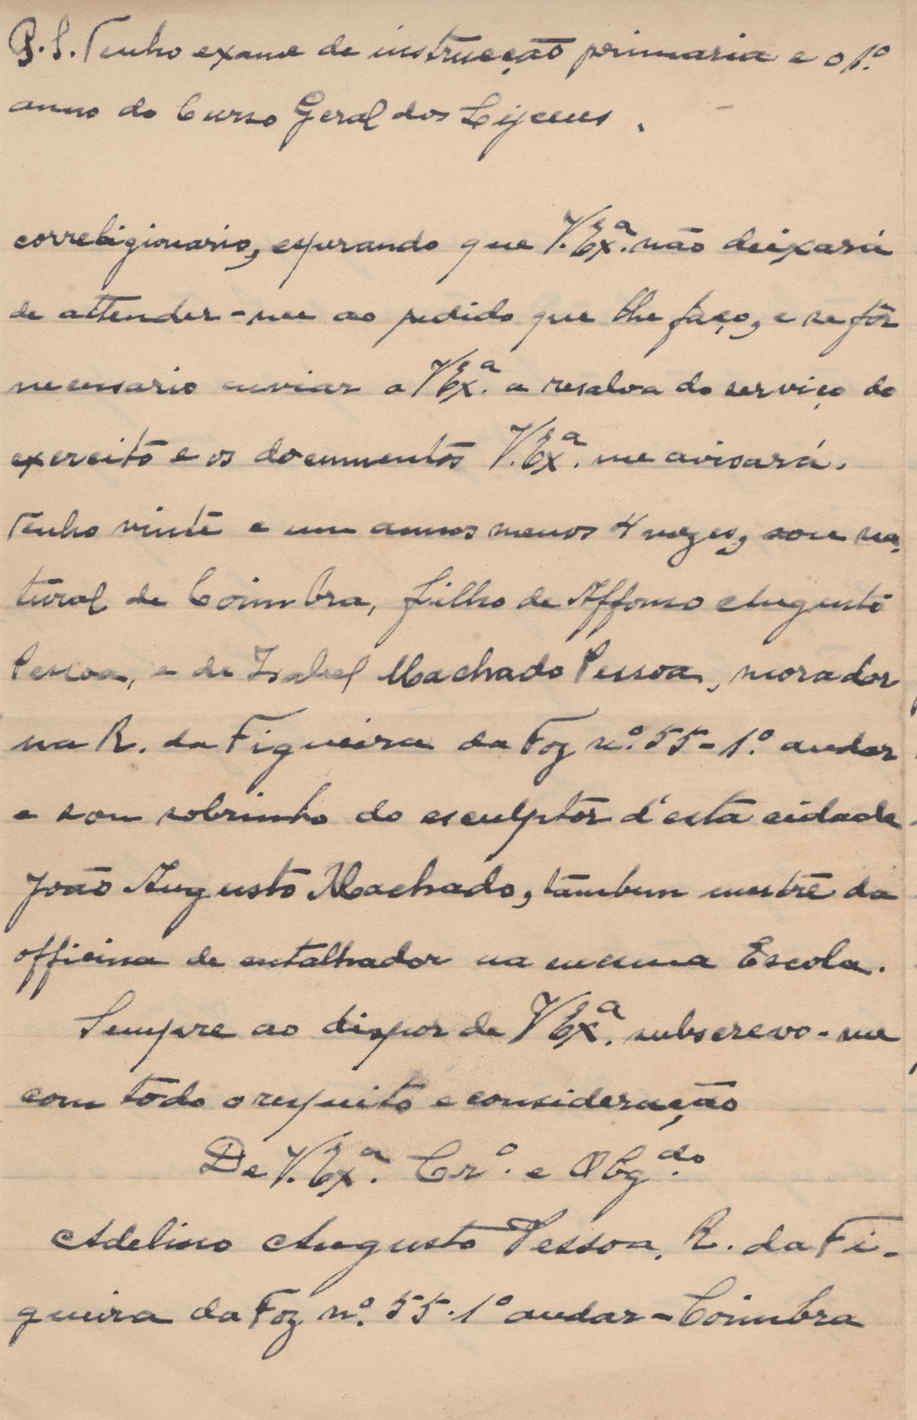 P.S. Tenho exame de instrucção primaria e o 1º
anno do Curso Geral dos Lyceus.
correligionario, esperando que V. Exª. não deixará
de attender-me ao pedido que lhe faço, e se fôr
necessario enviar a V Exª. a resalva do serviço do
exercito e os documentos V. Exª. me avisará.
Tenho vinte e um annos menos 4 mezes, sou na-
tural de Coimbra, filho de Affonso Augusto
Pessoa, e de Isabel Machado Pessoa, morador
na R. da Figueira da Foz nº. 55-1º. andar
e sou sobrinho do esculptor d'esta cidade
João Augusto Machado, tambem mestre da
officina de entalhador na mesma Escola.
Sempre ao dispor de V Exª. subscrevo-me
com todo o respeito e consideração
De V. Exª. Crº. e Obgdo.
Adelino Augusto Pessoa. R. da Fi-
gueira da Foz nº. 55.1º andar-Coimbra